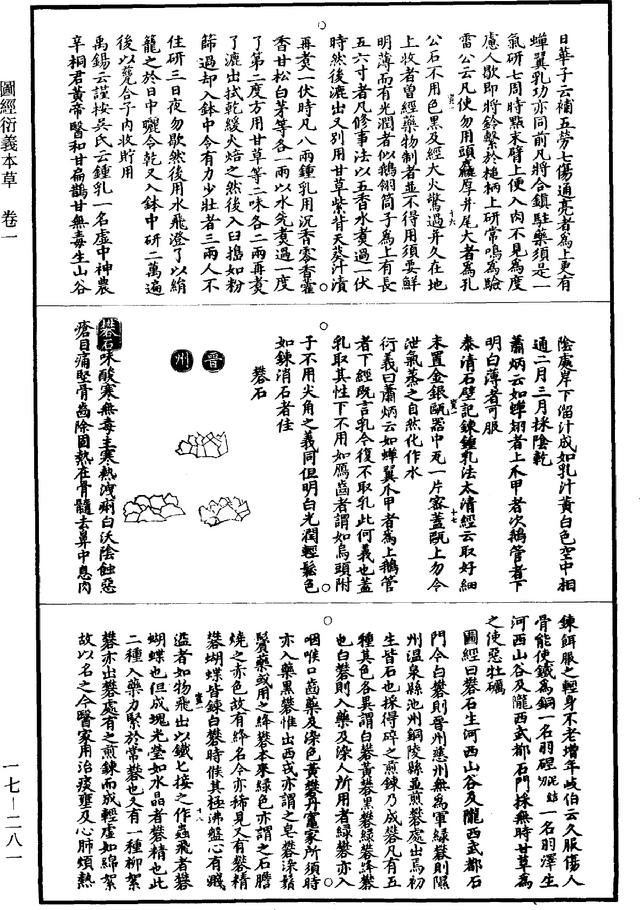 圖經衍義本草　卷一
日華子云補五勞七傷通亮者為上更有
蟬翼乳功亦同前凡將合鎮駐藥須是一
氣研七周時點末臂上便入肉不見為度
慮人歇即將鈴繫於槌柄上研常鳴為驗
雷公云凡使勿用頭麤厚并尾大者為孔
公石不用色黑及經大火驚過并久在地
上收者曾經藥物制者並不得用須要鮮
明薄而有光潤者似鵝翎筒子為上有長
五六寸者凡修事法以五香水煑過一伏
時然後漉出又別用甘草紫背天葵汁漬
再煑一伏時凡八兩鍾乳用沉香零香藿
香甘松白茅等各一兩以水先煑過一度
了第二度方用甘草等二味各二兩再煑
了漉出拭乾緩火焙之然後入臼擣如粉
篩過却入鉢中令有力少壯者三兩人不
住研三日夜勿歇然後用水飛澄了以絹
籠之於日中曬令乾又入鉢中研二萬遍
後以甆合子内收貯用
禹錫云謹按吳氏云鍾乳一名虛中神農
辛桐君黃帝醫和甘扁鵲甘無毒生山谷
陰處岸下溜汁成如乳汁黃白色空中相
通二月三月採陰乾
蕭炳云如蟬翅者上爪甲者次鵝管者下
明白薄者可服
泰清石壁記鍊鍾乳法太清經云取好細
末置金銀甌器中瓦一片密蓋甌上勿令
泄氣蒸之自然化作水
衍義曰蕭炳云如蟬翼爪甲者為上鵝管
者下經既言乳今復不取乳此何義也蓋
乳取其性下不用如鴈齒者謂如烏頭附
子不用尖角之義同但明白光潤輕鬆色
如鍊消石者佳
礬石
晉
州
礬石味酸寒無毒主寒熱洩痢白沃陰蝕惡
瘡目痛堅骨齒除固熱在骨髓去鼻中息肉
鍊餌服之輕身不老增年歧伯云久服傷人
骨能使鐵為銅一名羽𥓋一名羽澤生
河西山谷及隴西武都石門採無時甘草為
之使惡牡礪
圖經曰礬石生河西山谷及隴西武都石
門今白礬則晉州慈州無為軍綠礬則隰
州溫泉縣池州銅陵縣並煎礬處出焉初
生皆石也採得碎之煎鍊乃成礬凡有五
種其色各異謂白礬黃礬黑礬綠礬絳礬
也白礬則入藥及染人所用者綠礬亦入
咽喉口齒藥及染色黃礬丹竈家所須時
亦入藥黑礬惟出西戎亦謂之皂礬染鬚
鬢藥或用之絳礬本來綠色亦謂之石膽
燒之亦色故有絳名今亦稀見又有礬精
礬蝴蝶皆鍊白礬時候其極沸盤心有濺
溢者如物飛出以鐵匕接之作蟲飛者礬
蝴蝶也但成塊光瑩如水晶者礬精也此
二種入藥力緊於常礬也又有一種柳絮
礬亦出礬處有之煎鍊而成輕虛如綿絮
故以名之今醫家用治痰壅及心肺煩熱
一七—二八一